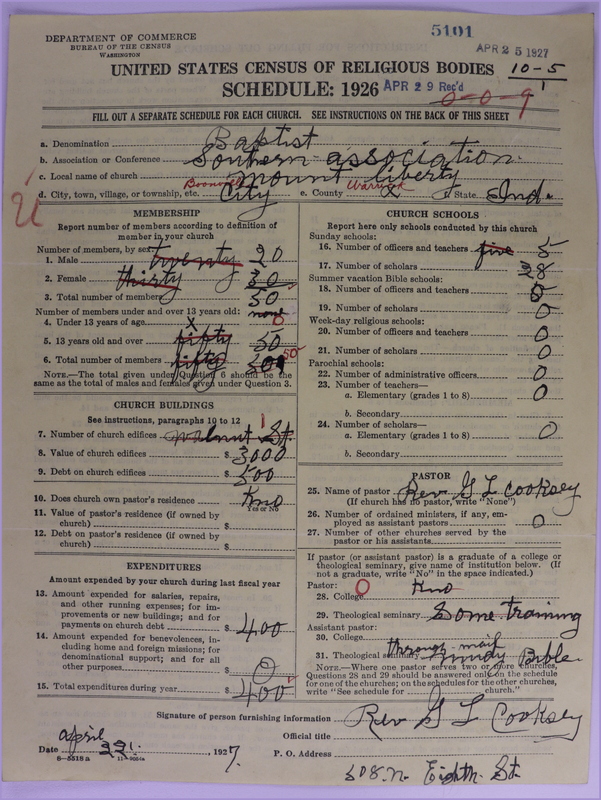 5101
DEPARTMENT OF COMMERCE
BUREAU OF THE CENSUS
WASHINGTON
APR 25 1927
UNITED STATES CENSUS OF RELIGIOUS BODIES
10-5
SCHEDULE: 1926
APR 29 Rec'd
0-0-9
1
FILL OUT A SEPARATE SCHEDULE FOR EACH CHURCH. SEE INSTRUCTIONS ON THE BACK OF THIS SHEET
a. Denomination Baptist
b. Association or Conference Southern association
c. Local name of church mount liberty
d. City, town, village, or township, etc. Boonville City e. County Warrick X f. State Ind.
MEMBERSHIP
Report number of members according to definition of member in your church
Number of members, by sex:
1. Male twenty 20
2. Female thirty 30
3. Total number of members 50
Number of members under and over 13 years old: none
4. Under 13 years of age X 0
5. 13 years old and over fifty 50
6. Total number of members fifty 50
NOTE.—The total given under Question 6 should be the
same as the total of males and females given under Question 3.
CHURCH BUILDINGS
See instructions, paragraphs 10 to 12
7. Number of church edifices walnut St. 1
8. Value of church edifices $ 3000
9. Debt on church edifices $ 500
10. Does church own pastor's residence Kno
Yes or No
11. Value of pastor's residence (if owned by
church) $
12. Debt on pastor's residence (if owned by
church) $
EXPENDITURES
Amount expended by your church during last fiscal year
13. Amount expended for salaries, repairs,
and other running expenses; for im-
provements or new buildings; and for
payments on church debt $ 400
14. Amount expended for benevolences, in-
cluding home and foreign missions; for
denominational support; and for all
other purposes $ 0
15. Total expenditures during year $ 400
CHURCH SCHOOLS
Report here only schools conducted by this church
Sunday schools:
16. Number of officers and teachers five 5
17. Number of scholars 38
Summer vacation Bible schools:
18. Number of officers and teachers 0
19. Number of scholars 0
Week-day religious schools:
20. Number of officers and teachers 0
21. Number of scholars 0
Parochial schools:
22. Number of administrative officers 0
23. Number of teachers—
a. Elementary (grades 1 to 8) 0
b. Secondary
24. Number of scholars—
a. Elementary (grades 1 to 8) 0
b. Secondary
PASTOR
25. Name of pastor Rev G L Cooksey
(If church has no pastor, write "None")
26. Number of ordained ministers, if any, em-
ployed as assistant pastors 0
27. Number of other churches served by the
pastor or his assistants
If pastor (or assistant pastor) is a graduate of a college or
theological seminary, give name of institution below. (If
not a graduate, write "No" in the space indicated.)
Pastor:
28. College 0 Kno
29. Theological seminary Some training
Assistant pastor:
30. College through mail
31. Theological seminary Bible
NOTE.—Where one pastor serves two or more churches,
Questions 28 and 29 should be answered only on the schedule
for one of the churches; on the schedules for the other churches,
write "See schedule for church."
Signature of person furnishing information Rev G L Cooksey
Official title
Date april 22, 1927.
P. O. Address 508. n. Eighth. St.
8—5518 a